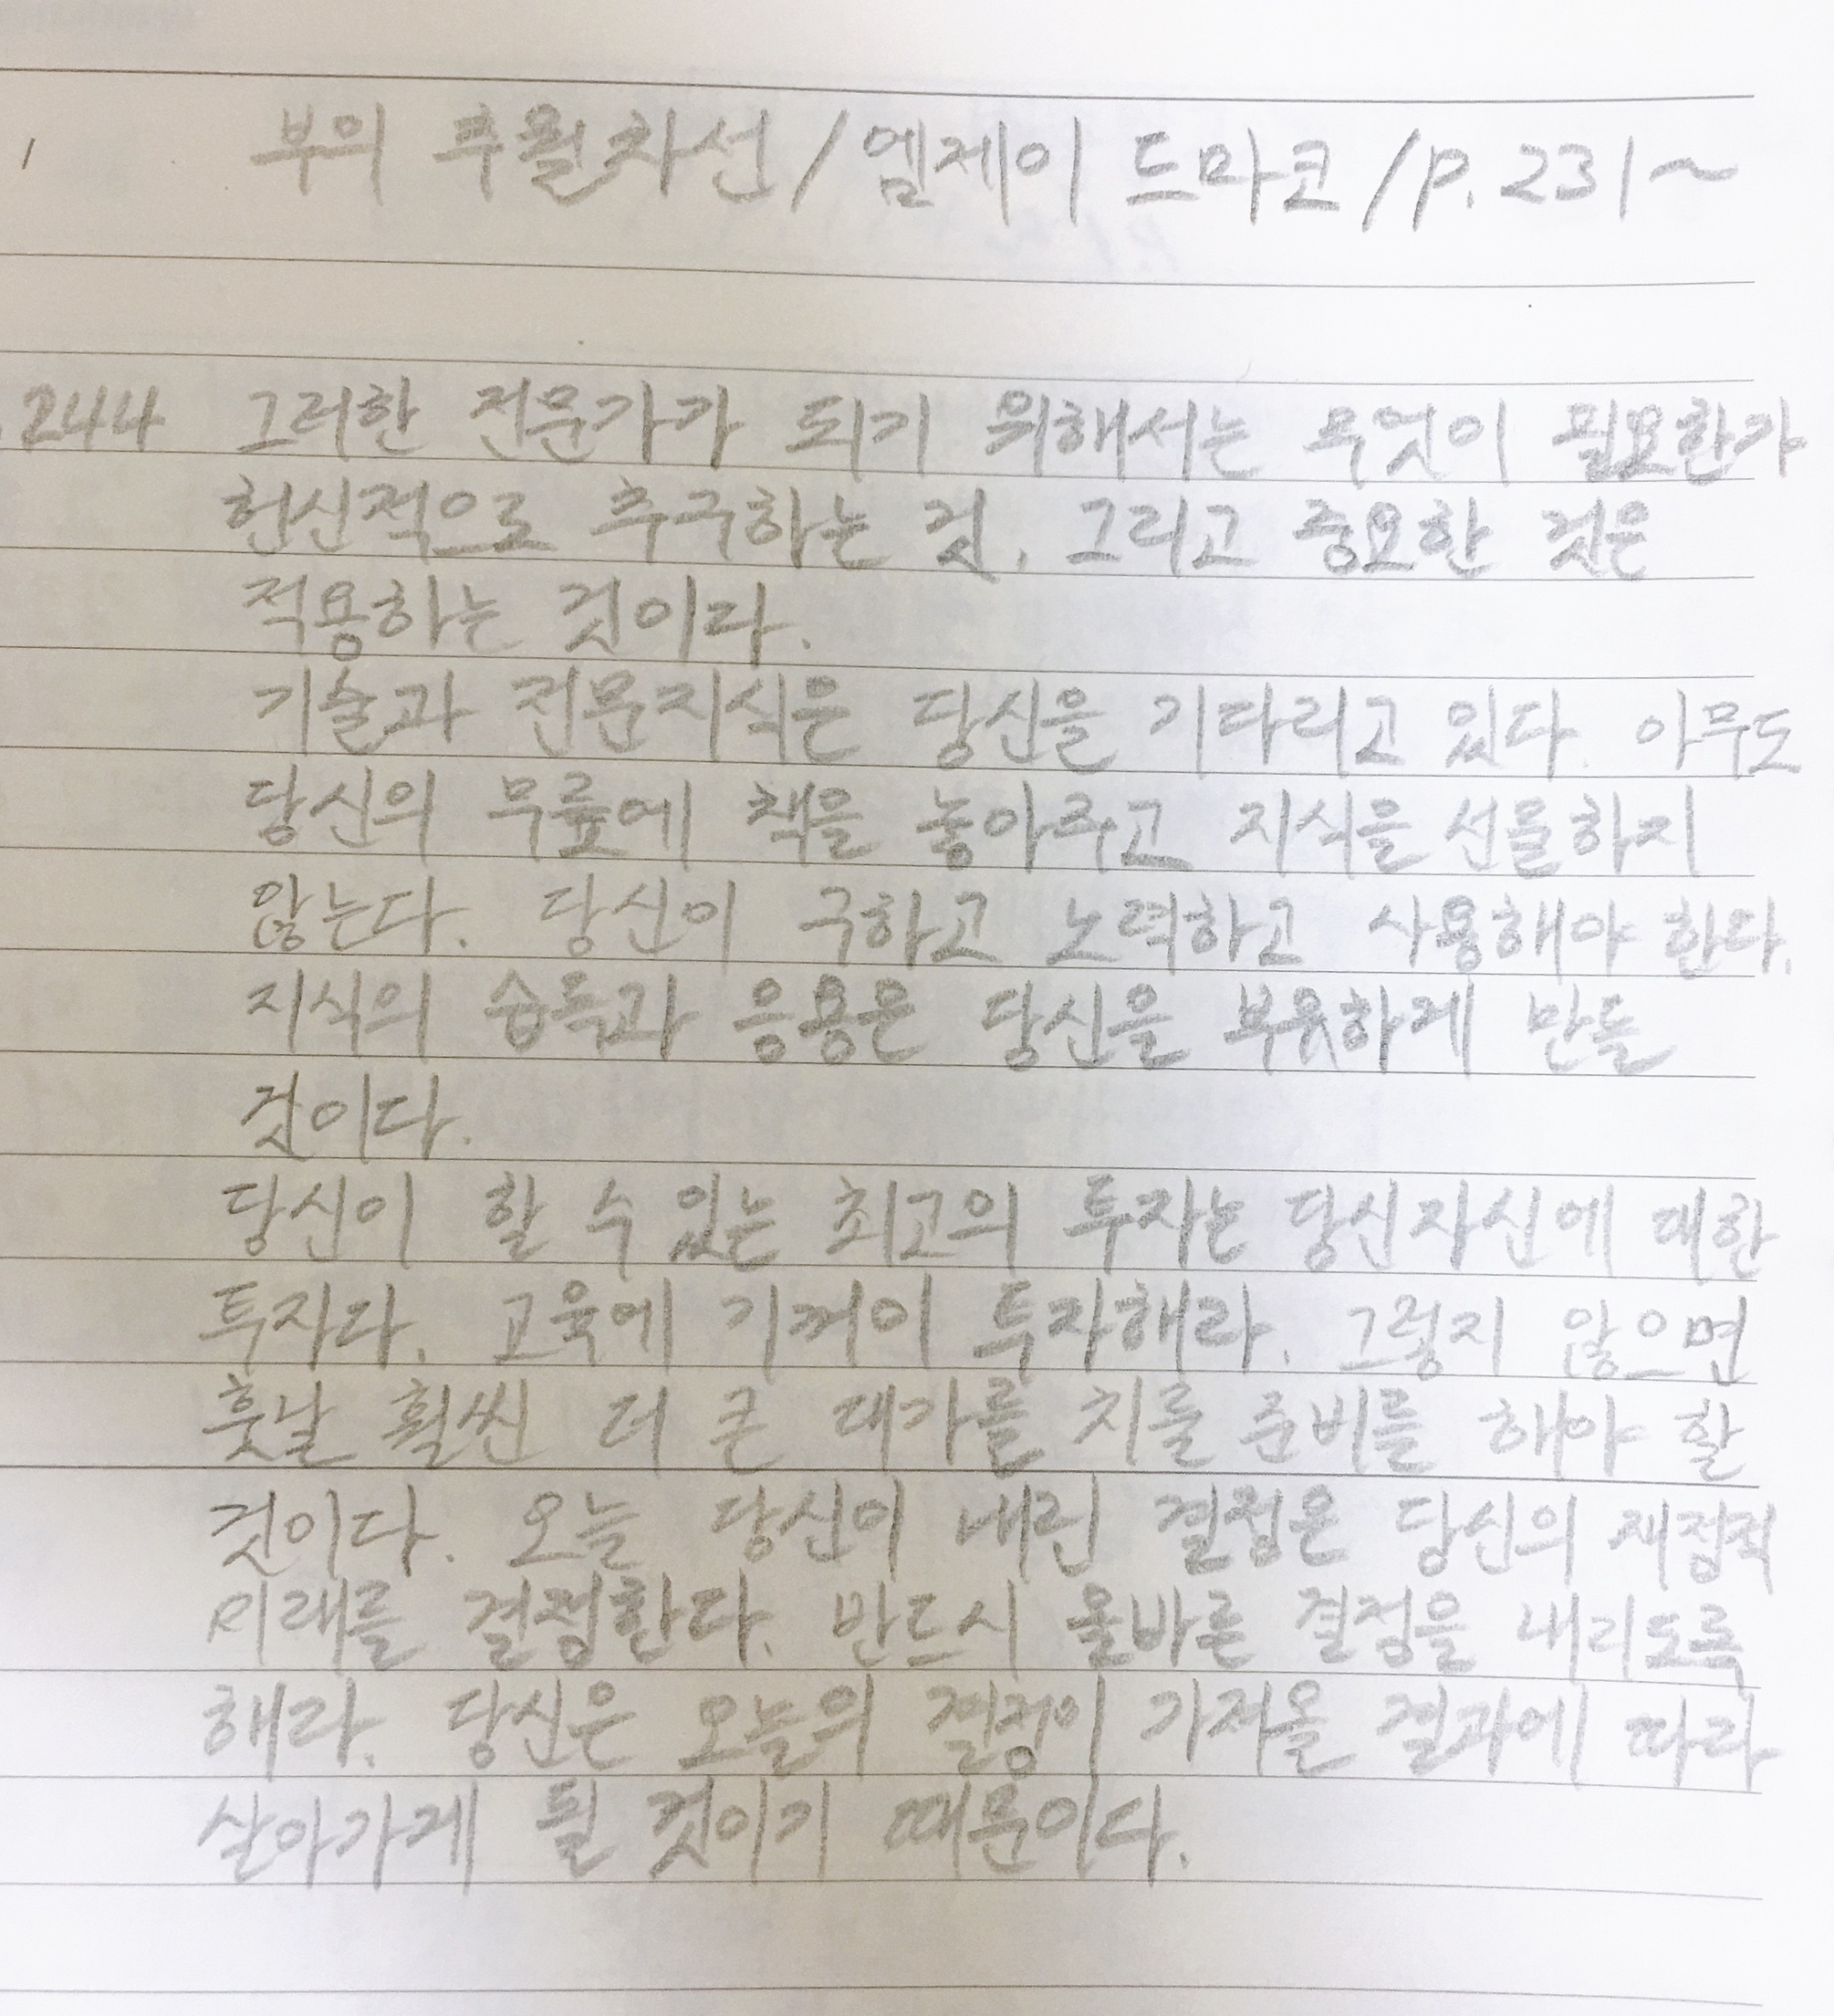 부의 추월차선/엠제이 드마코/p.231~
244 그러한 전문가가 되기 위해서는 무엇이 필요한가
헌신적으로 추구하는 것, 그리고 중요한 것은
적용하는 것이다.
기술과 전문지식은 당신을 기다리고 있다. 아무도
당신의 무릎에 책을 놓아주고 지식을 선물하지
않는다. 당신이 구하고 노력하고 사용해야 한다.
지식의 습득과 응용은 당신을 부유하게 만들
것이다.
당신이 할 수 있는 최고의 투자는 당신자신에 대한
투자다. 교육에 기꺼이 투자해라. 그렇지 않으면
훗날 훨씬 더 큰 대가를 치룰 준비를 해야 할
것이다. 오늘 당신이 내린 결정은 당신의 재정적
미래를 결정한다. 반드시 올바른 결정을 내리도록
해라. 당신은 오늘의 결정이 가져올 결과에 따라
살아가게 될 것이기 때문이다.